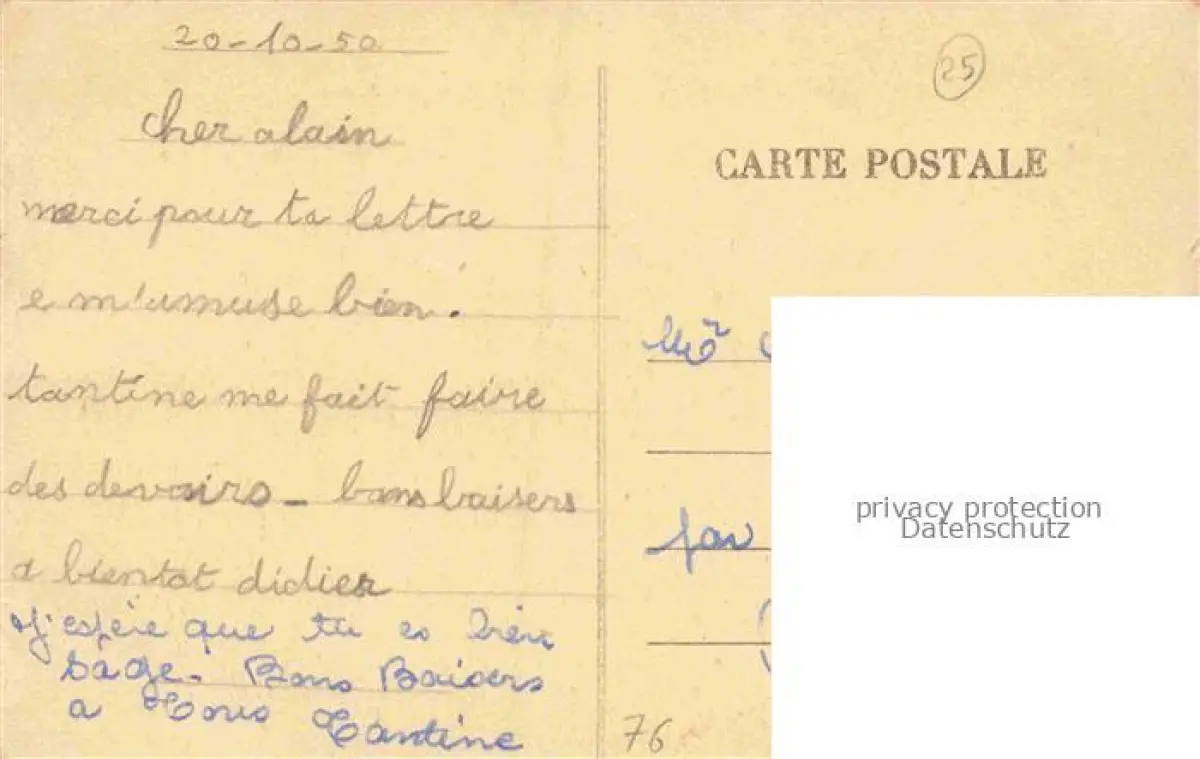 20-10-50
cher alain
merci pour ta lettre
e m'amuse bien.
tantine me fait faire
des devoirs - bons baisers
a bientot didier
J'espère que tu es bien
sage. Bons Baisers
a Tous Tantine
25
CARTE POSTALE
Mr
par
privacy protection
Datenschutz
76